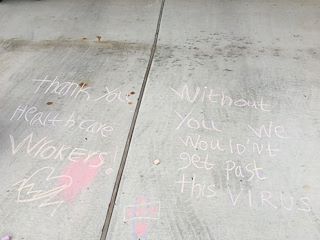 Thank you
Healthcare
WROKERS!
Without
You We
Wouldn't
get past
this VIRUS